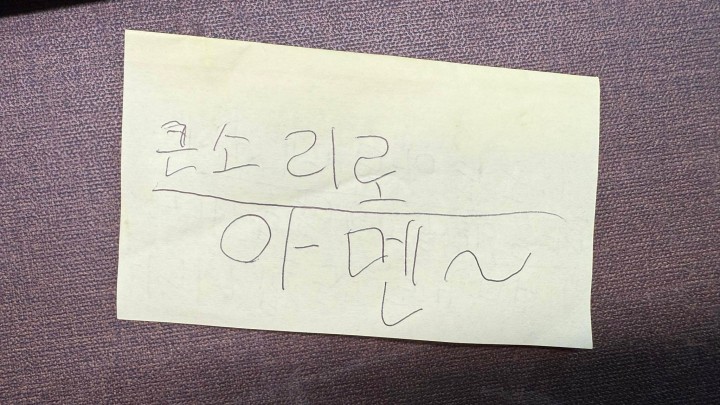 큰소리로
아멘~